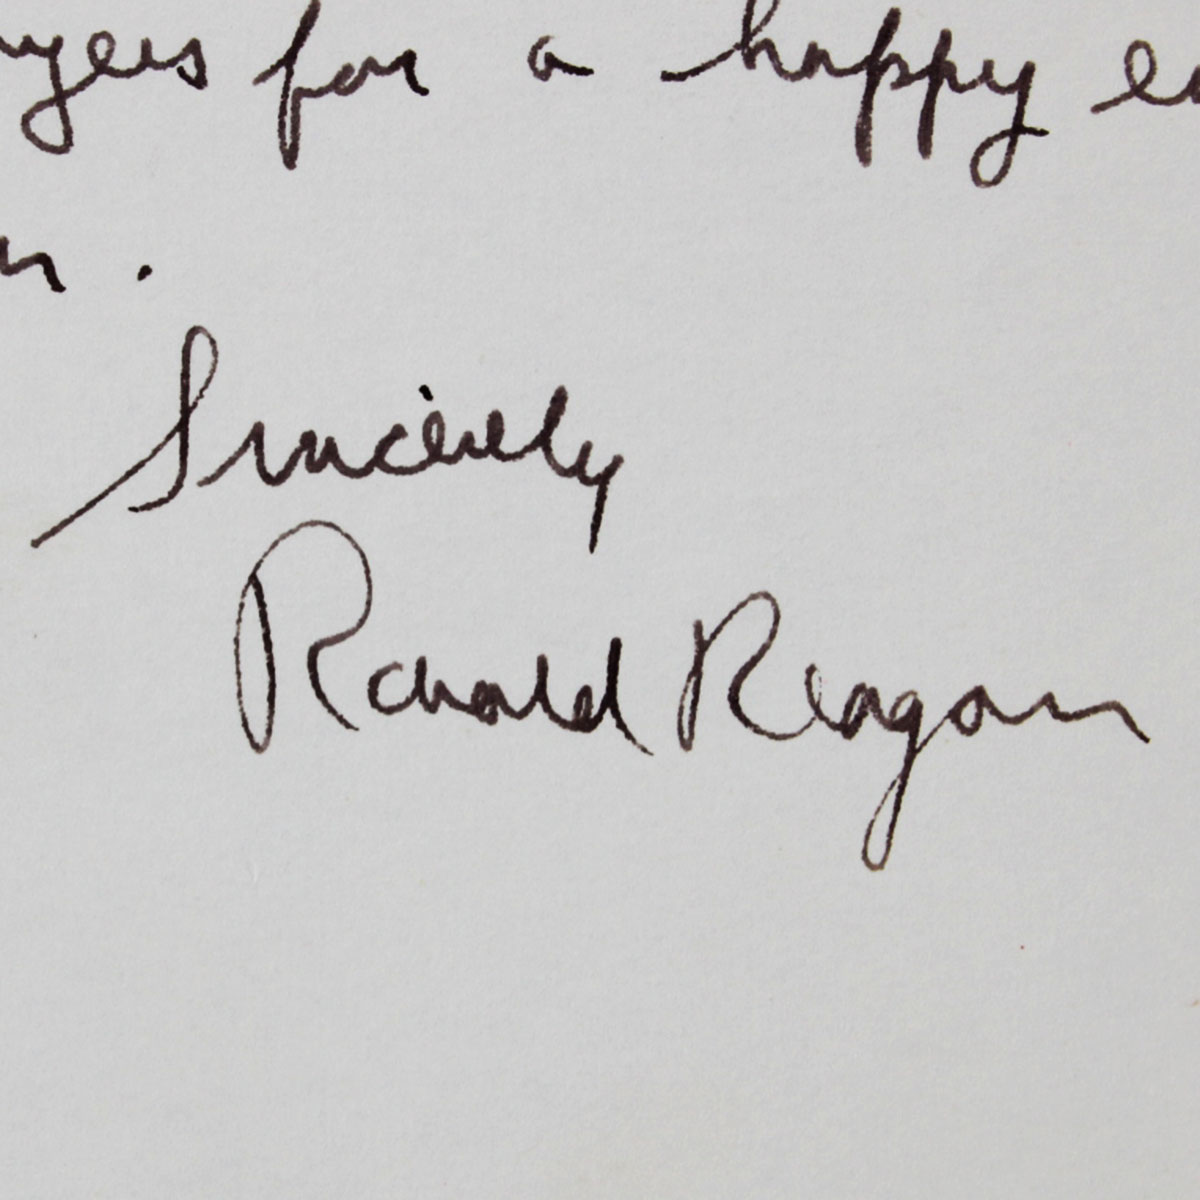 ayers for a happy ea
n.
Sincerely
Ronald Reagan